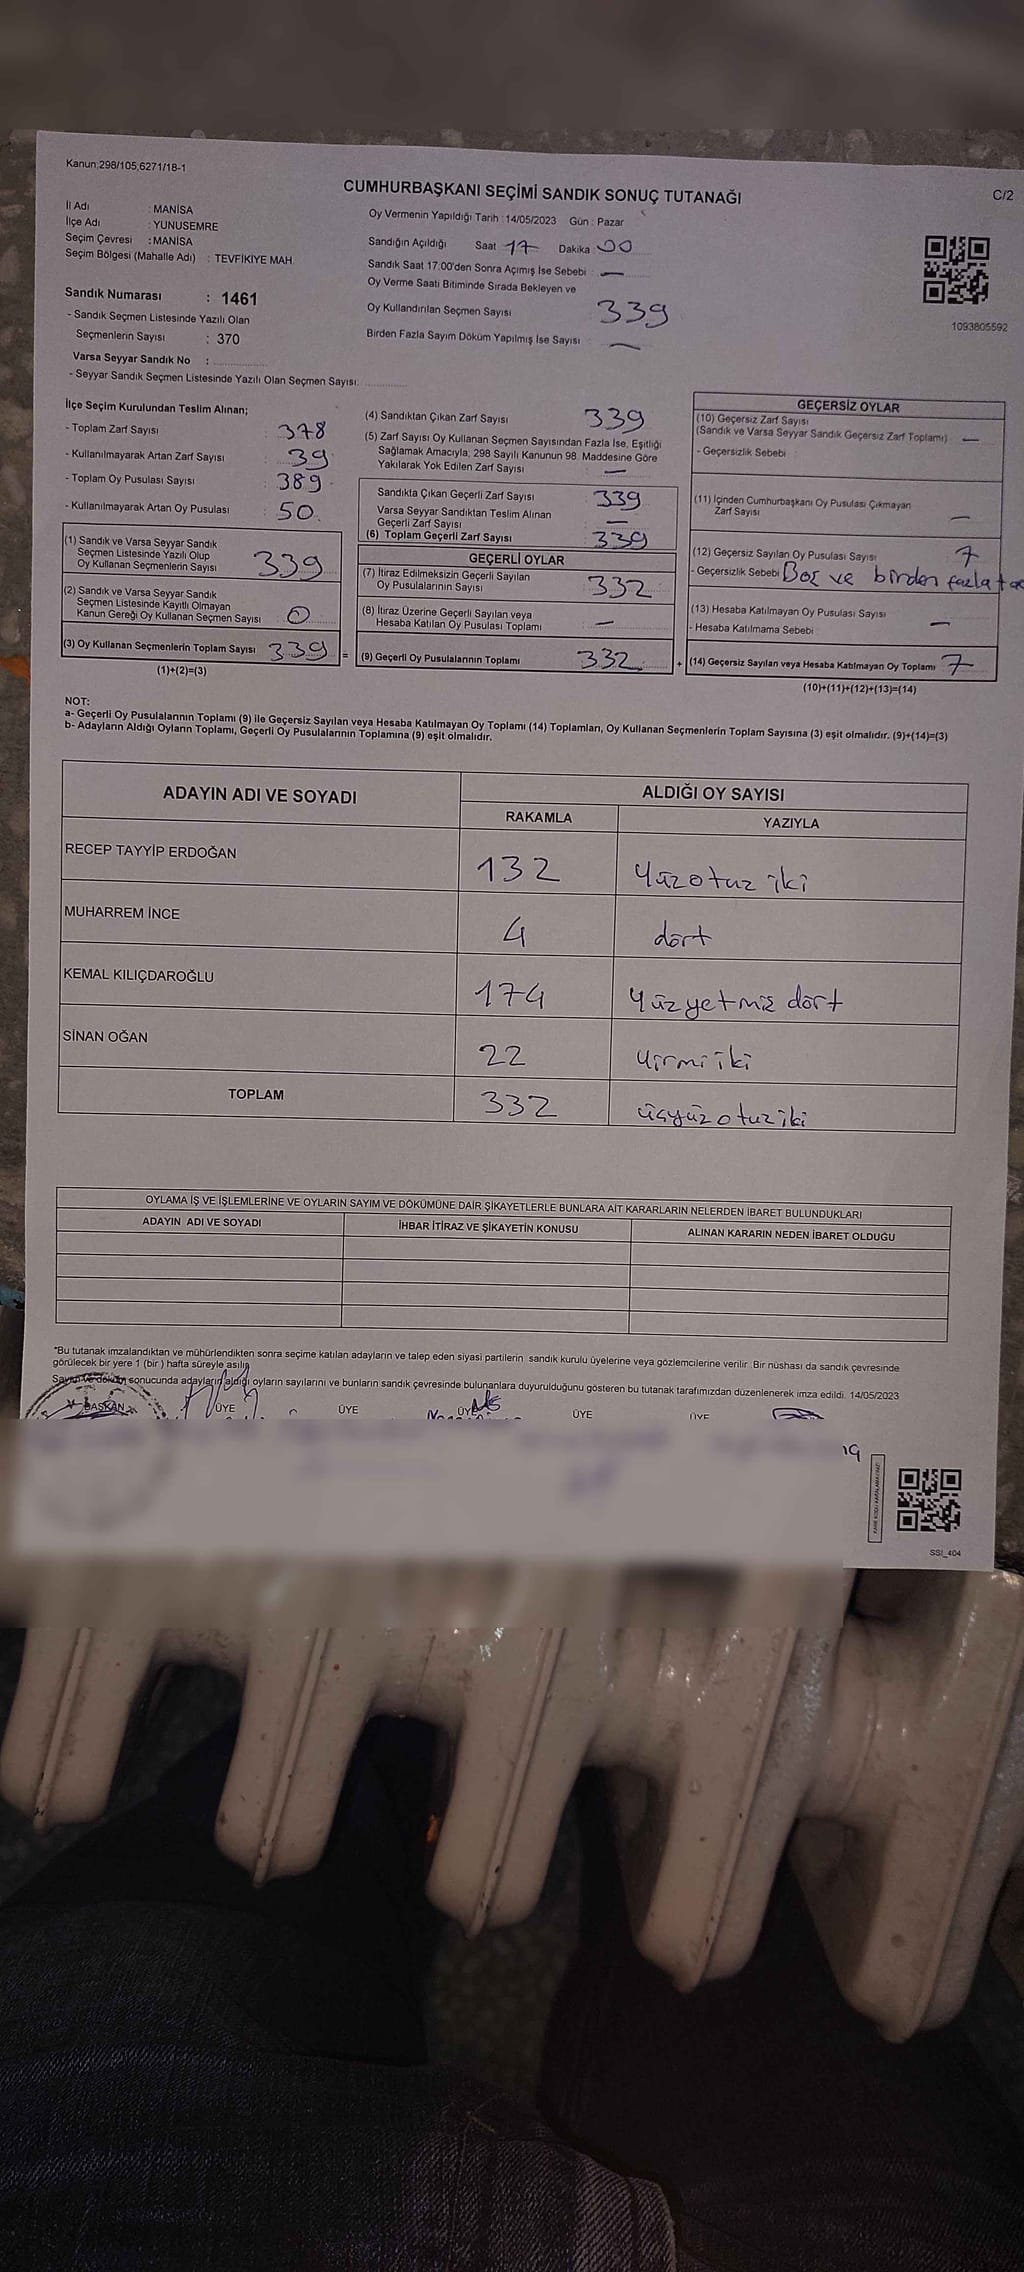 Kanun;298/105;6271/18-1
CUMHURBAŞKANI SEÇİMİ SANDIK SONUÇ TUTANAĞI
C/2
İl Adı : MANİSA
İlçe Adı : YUNUSEMRE
Seçim Çevresi : MANİSA
Seçim Bölgesi (Mahalle Adı) : TEVFİKİYE MAH.
Sandık Numarası : 1461
- Sandık Seçmen Listesinde Yazılı Olan
Seçmenlerin Sayısı : 370
Varsa Seyyar Sandık No :
- Seyyar Sandık Seçmen Listesinde Yazılı Olan Seçmen Sayısı:
Oy Vermenin Yapıldığı Tarih : 14/05/2023 Gün : Pazar
Sandığın Açıldığı Saat 17 Dakika 00
Sandık Saat 17.00'den Sonra Açımış İse Sebebi : —
Oy Verme Saati Bitiminde Sırada Bekleyen ve
Oy Kullandırılan Seçmen Sayısı 339
Birden Fazla Sayım Döküm Yapılmış İse Sayısı : —
1093805592
İlçe Seçim Kurulundan Teslim Alınan;
- Toplam Zarf Sayısı : 378
- Kullanılmayarak Artan Zarf Sayısı : 39
- Toplam Oy Pusulası Sayısı : 389
- Kullanılmayarak Artan Oy Pusulası : 50
(1) Sandık ve Varsa Seyyar Sandık
Seçmen Listesinde Yazılı Olup
Oy Kullanan Seçmenlerin Sayısı 339
(2) Sandık ve Varsa Seyyar Sandık
Seçmen Listesinde Kayıtlı Olmayan
Kanun Gereği Oy Kullanan Seçmen Sayısı : 0
(3) Oy Kullanan Seçmenlerin Toplam Sayısı 339 =
(1)+(2)=(3)
(4) Sandıktan Çıkan Zarf Sayısı 339
(5) Zarf Sayısı Oy Kullanan Seçmen Sayısından Fazla İse, Eşitliği
Sağlamak Amacıyla, 298 Sayılı Kanunun 98. Maddesine Göre
Yakılarak Yok Edilen Zarf Sayısı —
Sandıkta Çıkan Geçerli Zarf Sayısı 339
Varsa Seyyar Sandıktan Teslim Alınan
Geçerli Zarf Sayısı —
(6) Toplam Geçerli Zarf Sayısı 339
GEÇERLİ OYLAR
(7) İtiraz Edilmeksizin Geçerli Sayılan
Oy Pusulalarının Sayısı 332
(8) İtiraz Üzerine Geçerli Sayılan veya
Hesaba Katılan Oy Pusulası Toplamı —
(9) Geçerli Oy Pusulalarının Toplamı 332 +
GEÇERSİZ OYLAR
(10) Geçersiz Zarf Sayısı
(Sandık ve Varsa Seyyar Sandık Geçersiz Zarf Toplamı) —
- Geçersizlik Sebebi :
(11) İçinden Cumhurbaşkanı Oy Pusulası Çıkmayan
Zarf Sayısı —
(12) Geçersiz Sayılan Oy Pusulası Sayısı 7
- Geçersizlik Sebebi Boş ve birden fazla
(13) Hesaba Katılmayan Oy Pusulası Sayısı —
- Hesaba Katılmama Sebebi
(14) Geçersiz Sayılan veya Hesaba Katılmayan Oy Toplamı 7
(10)+(11)+(12)+(13)=(14)
NOT:
a- Geçerli Oy Pusulalarının Toplamı (9) ile Geçersiz Sayılan veya Hesaba Katılmayan Oy Toplamı (14) Toplamları, Oy Kullanan Seçmenlerin Toplam Sayısına (3) eşit olmalıdır. (9)+(14)=(3)
b- Adayların Aldığı Oyların Toplamı, Geçerli Oy Pusulalarının Toplamına (9) eşit olmalıdır.
ADAYIN ADI VE SOYADI ALDIĞI OY SAYISI
RAKAMLA YAZIYLA
RECEP TAYYİP ERDOĞAN 132 yüzotuz iki
MUHARREM İNCE 4 dört
KEMAL KILIÇDAROĞLU 174 yüzyetmiş dört
SİNAN OĞAN 22 yirmi iki
TOPLAM 332 üçyüz otuz iki
OYLAMA İŞ VE İŞLEMLERİNE VE OYLARIN SAYIM VE DÖKÜMÜNE DAİR ŞİKAYETLERLE BUNLARA AİT KARARLARIN NELERDEN İBARET BULUNDUKLARI
ADAYIN ADI VE SOYADI İHBAR İTİRAZ VE ŞİKAYETİN KONUSU ALINAN KARARIN NEDEN İBARET OLDUĞU
*Bu tutanak imzalandıktan ve mühürlendikten sonra seçime katılan adayların ve talep eden siyasi partilerin sandık kurulu üyelerine veya gözlemcilerine verilir. Bir nüshası da sandık çevresinde
görülecek bir yere 1 (bir) hafta süreyle asılır.
Sayım ve döküm sonucunda adayların aldığı oyların sayılarını ve bunların sandık çevresinde bulunanlara duyurulduğunu gösteren bu tutanak tarafımızdan düzenlenerek imza edildi. 14/05/2023
BAŞKAN ÜYE ÜYE ÜYE ÜYE ÜYE
SSİ_404